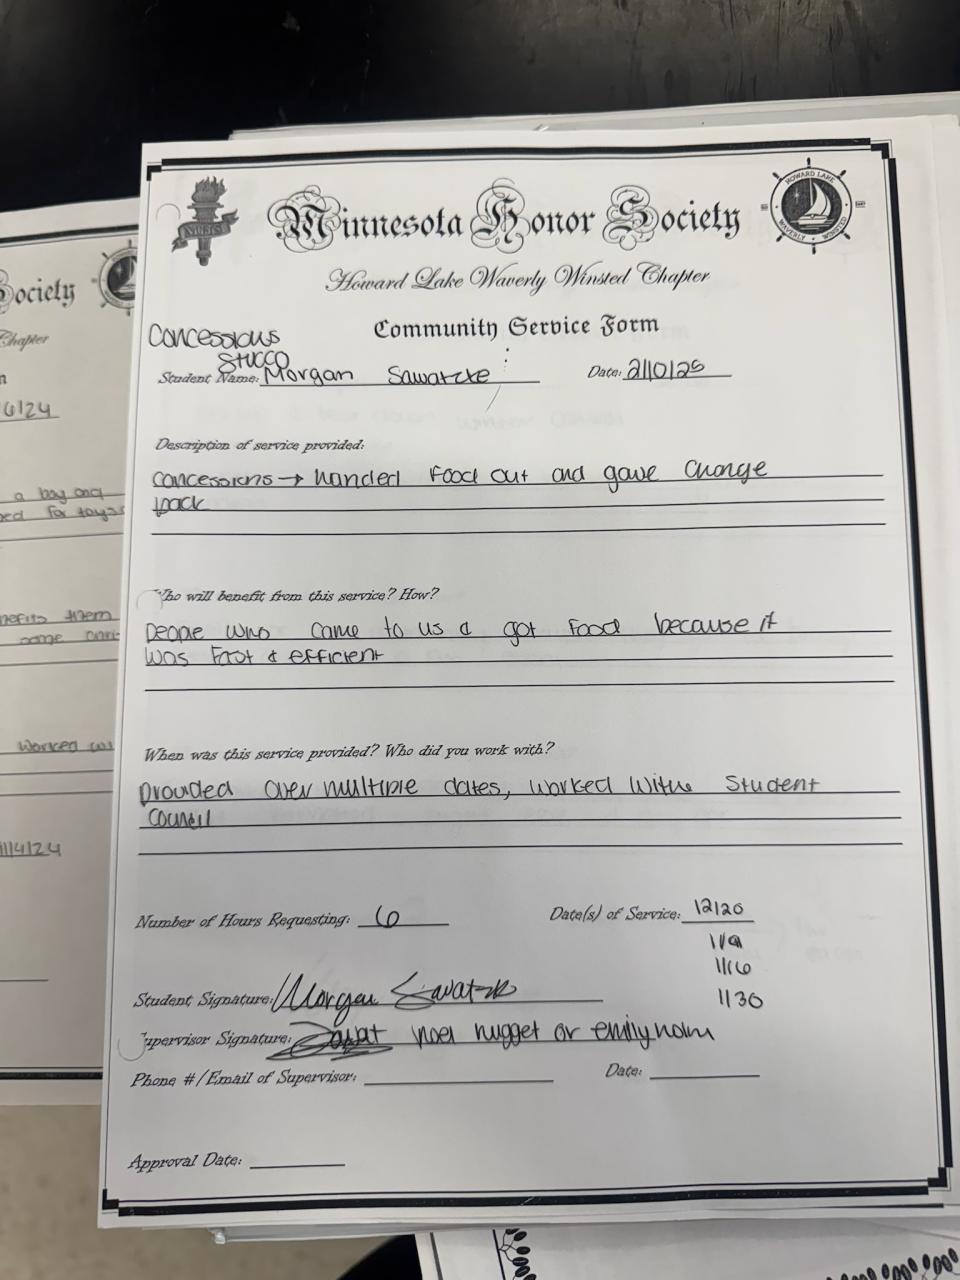 Minnesota Honor Society
HOWARD LAKE
WAVERLY WINSTED
Howard Lake Waverly Winsted Chapter
Community Service Form
Concessions
StUCO
Student Name: Morgan Sawatzke Date: 2/10/25
Description of service provided:
concessions → handed food out and gave change
back
Who will benefit from this service? How?
People who came to us & got food because it
was fast & efficient
When was this service provided? Who did you work with?
provided over multiple dates, worked with Student
Council
Number of Hours Requesting: 6 Date(s) of Service: 12/20
1/9
1/16
1/30
Student Signature: Morgan Sawatzke
Supervisor Signature: noel nugget or emily holm
Phone #/Email of Supervisor: Date:
Approval Date:
Society
Chapter
6/24
a boy and
for toys
nefits them
some
worked wi
11/4/24